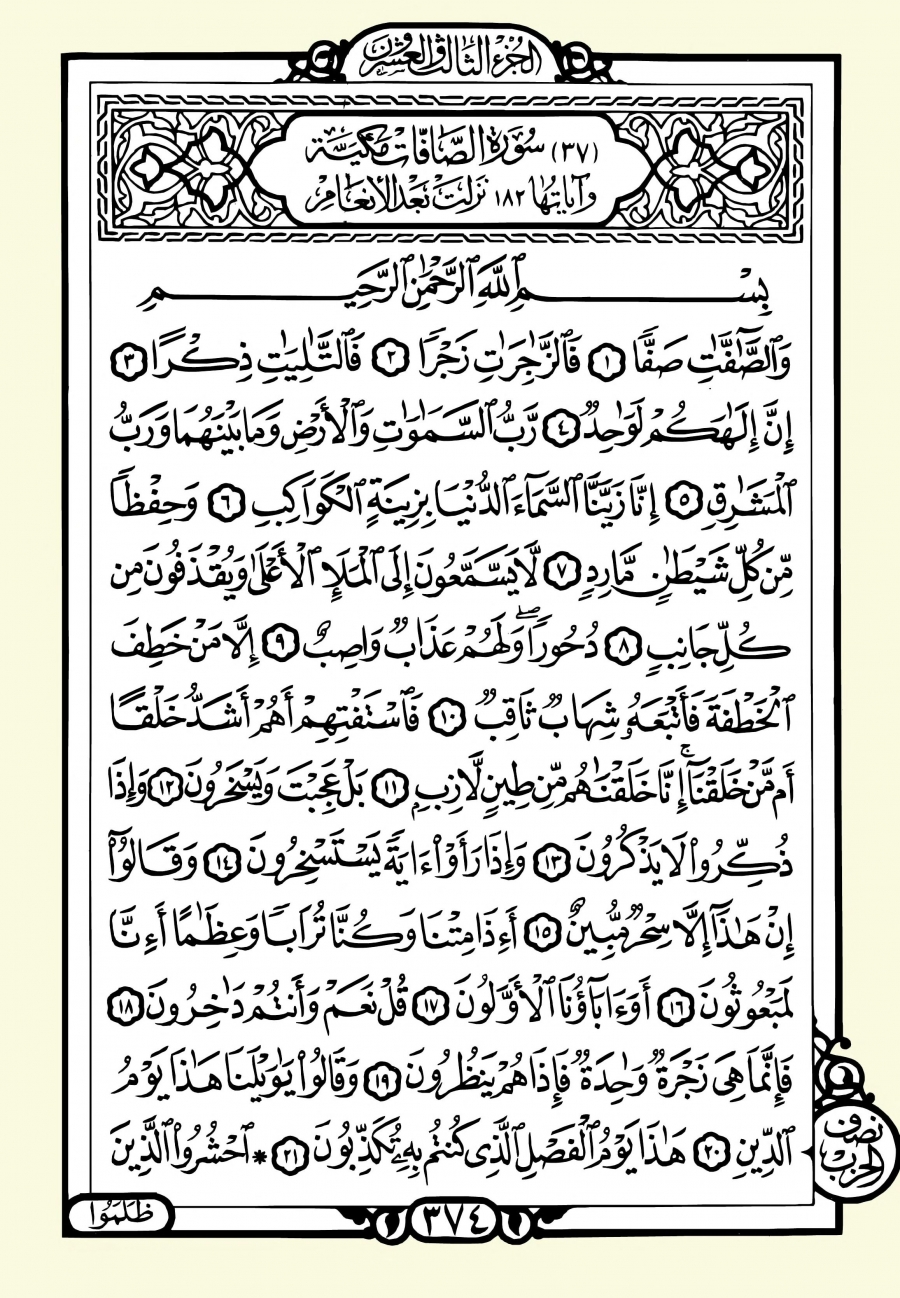 الجزء الثالث والعشرون
(٣٧) سورة الصافات مكية
وآياتها ١٨٢ نزلت بعد الأنعام
بِسْمِ ٱللَّهِ ٱلرَّحْمَٰنِ ٱلرَّحِيمِ
وَٱلصَّٰٓفَّٰتِ صَفًّا ١ فَٱلزَّٰجِرَٰتِ زَجْرًا ٢ فَٱلتَّٰلِيَٰتِ ذِكْرًا ٣
إِنَّ إِلَٰهَكُمْ لَوَٰحِدٌ ٤ رَّبُّ ٱلسَّمَٰوَٰتِ وَٱلْأَرْضِ وَمَا بَيْنَهُمَا وَرَبُّ
ٱلْمَشَٰرِقِ ٥ إِنَّا زَيَّنَّا ٱلسَّمَآءَ ٱلدُّنْيَا بِزِينَةٍ ٱلْكَوَاكِبِ ٦ وَحِفْظًا
مِّن كُلِّ شَيْطَٰنٍ مَّارِدٍ ٧ لَّا يَسَّمَّعُونَ إِلَى ٱلْمَلَإِ ٱلْأَعْلَىٰ وَيُقْذَفُونَ مِن
كُلِّ جَانِبٍ ٨ دُحُورًا ۖ وَلَهُمْ عَذَابٌ وَاصِبٌ ٩ إِلَّا مَنْ خَطِفَ
ٱلْخَطْفَةَ فَأَتْبَعَهُۥ شِهَابٌ ثَاقِبٌ ١٠ فَٱسْتَفْتِهِمْ أَهُمْ أَشَدُّ خَلْقًا
أَم مَّنْ خَلَقْنَآ ۚ إِنَّا خَلَقْنَٰهُم مِّن طِينٍ لَّازِبٍ ١١ بَلْ عَجِبْتَ وَيَسْخَرُونَ ١٢ وَإِذَا
ذُكِّرُوا۟ لَا يَذْكُرُونَ ١٣ وَإِذَا رَأَوْا۟ ءَايَةً يَسْتَسْخِرُونَ ١٤ وَقَالُوٓا۟
إِنْ هَٰذَآ إِلَّا سِحْرٌ مُّبِينٌ ١٥ أَءِذَا مِتْنَا وَكُنَّا تُرَابًا وَعِظَٰمًا أَءِنَّا
لَمَبْعُوثُونَ ١٦ أَوَءَابَآؤُنَا ٱلْأَوَّلُونَ ١٧ قُلْ نَعَمْ وَأَنتُمْ دَٰخِرُونَ ١٨
فَإِنَّمَا هِىَ زَجْرَةٌ وَٰحِدَةٌ فَإِذَا هُمْ يَنظُرُونَ ١٩ وَقَالُوا۟ يَٰوَيْلَنَا هَٰذَا يَوْمُ
ٱلدِّينِ ٢٠ هَٰذَا يَوْمُ ٱلْفَصْلِ ٱلَّذِى كُنتُم بِهِۦ تُكَذِّبُونَ ٢١ * ٱحْشُرُوا۟ ٱلَّذِينَ
نصف
الحزب
ظَلَمُوا
٣٧٤